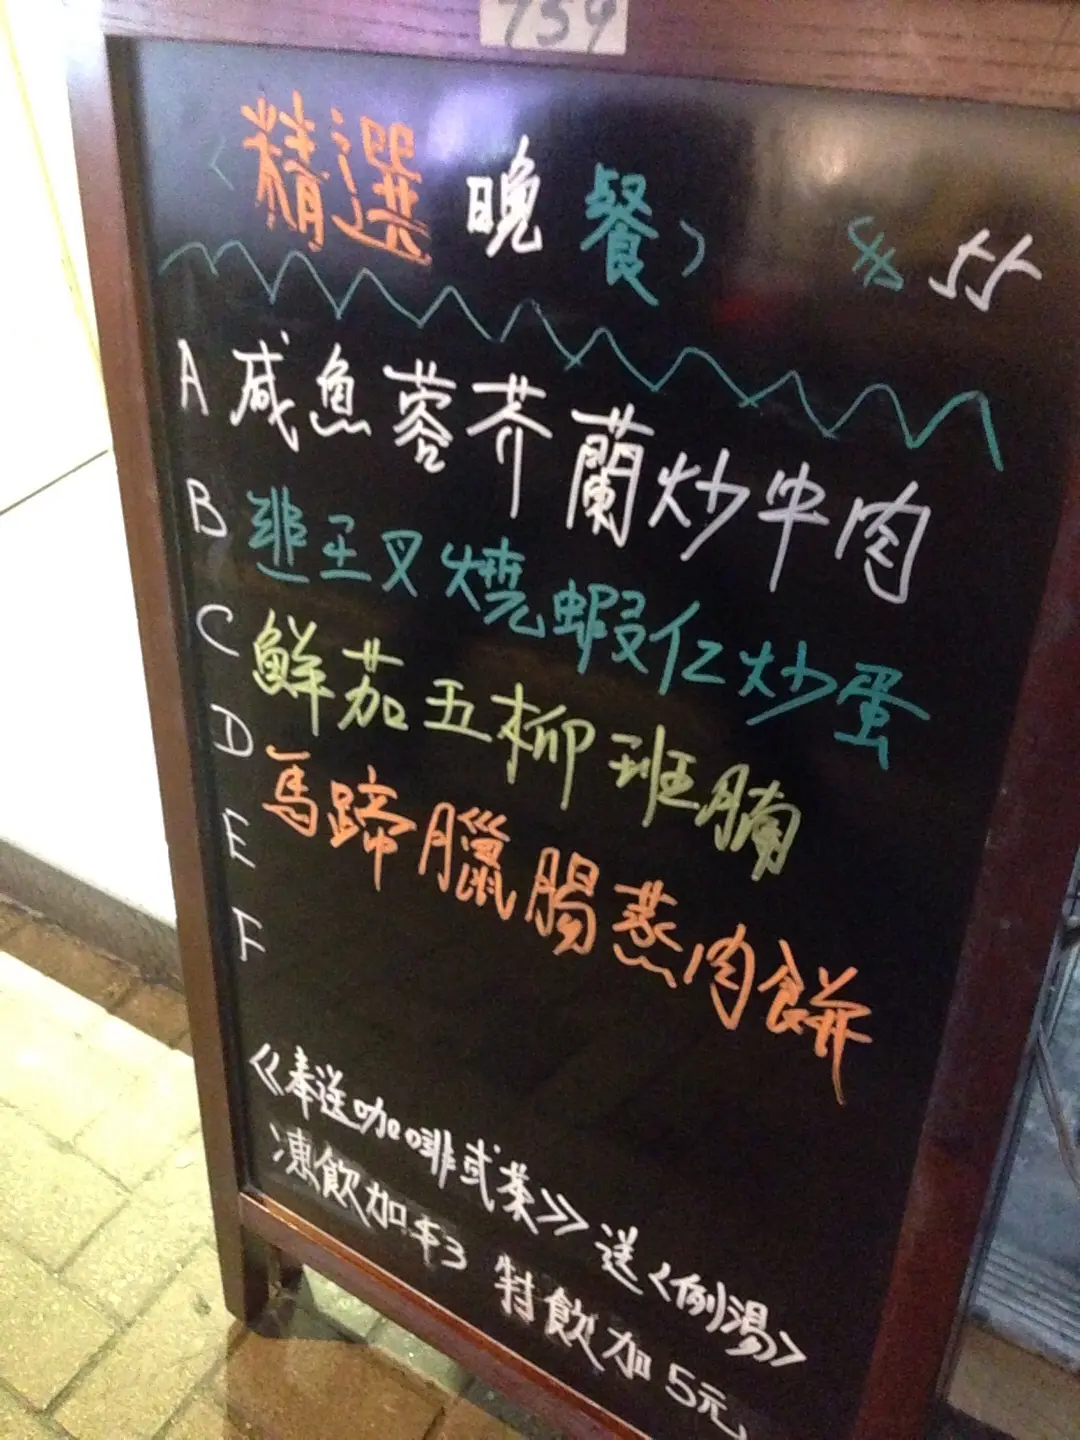 759
〈精選晚餐〉 $55
A 咸魚蓉芥蘭炒牛肉
B 韭王叉燒蝦仁炒蛋
C 鮮茄五柳班腩
D 馬蹄臘腸蒸肉餅
E
F
《奉送咖啡或茶》送〈例湯〉
凍飲加$3 特飲加5元